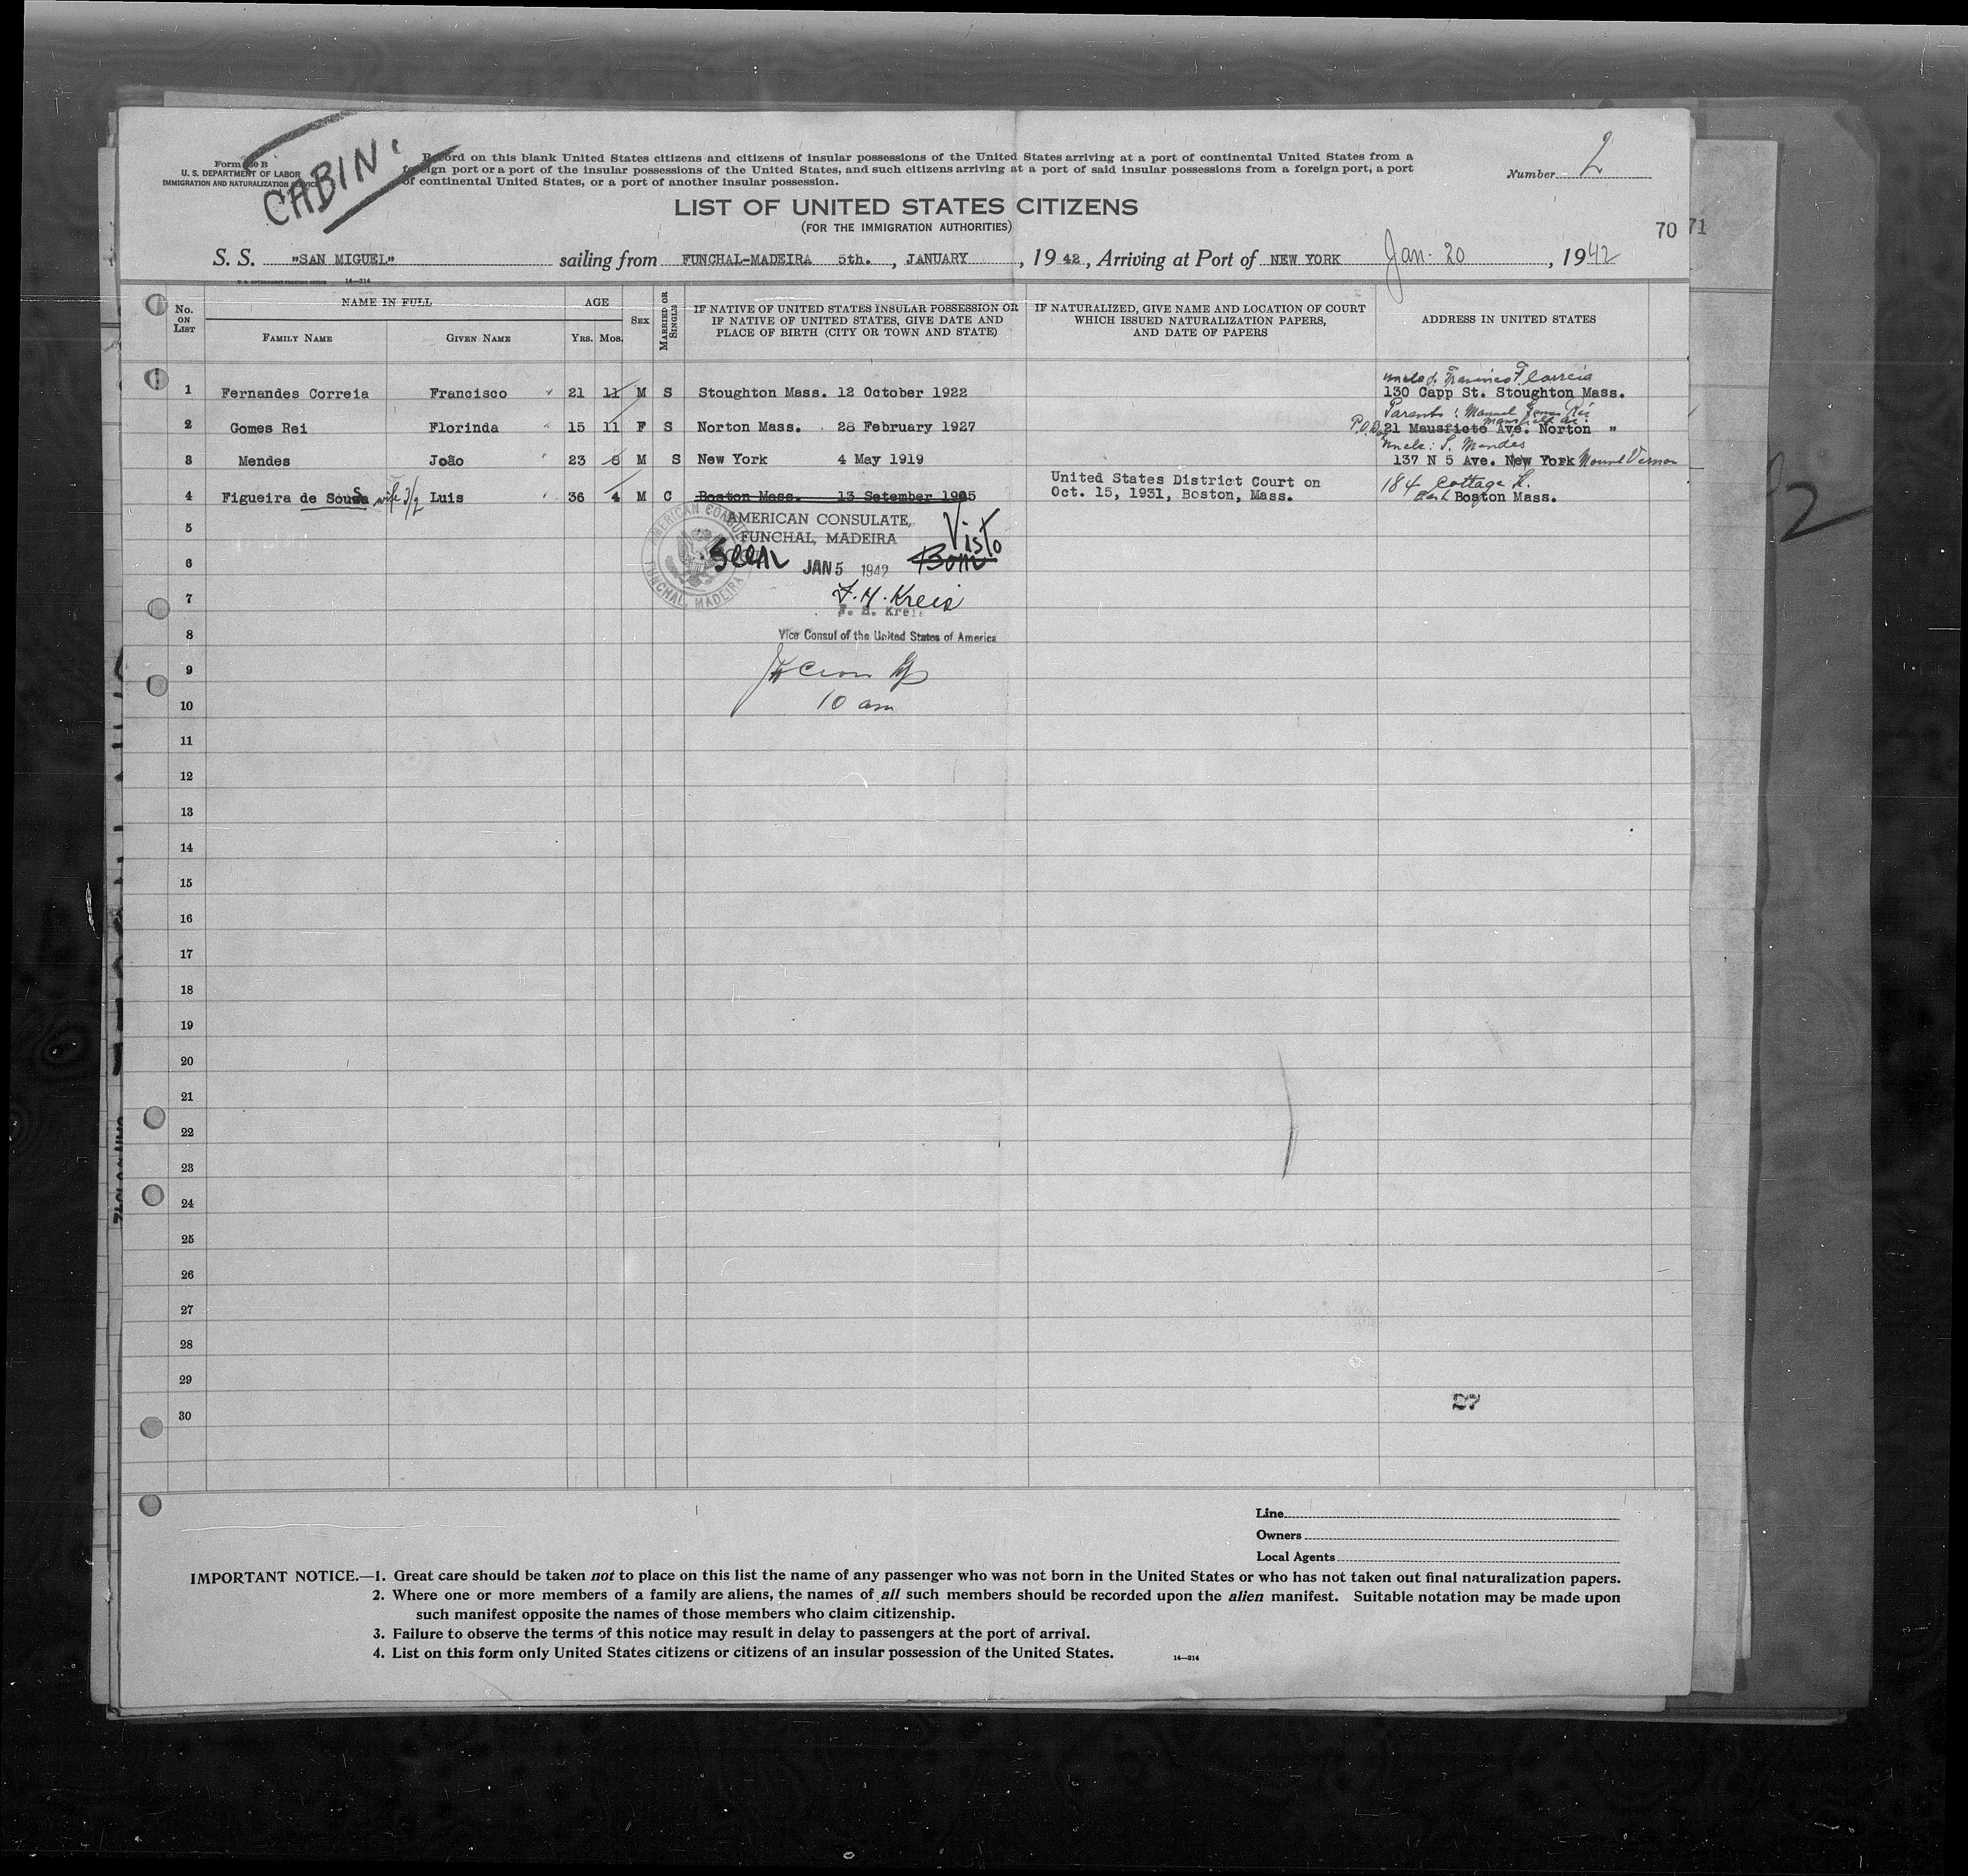 CABIN.
Form 630 B
U. S. DEPARTMENT OF LABOR
IMMIGRATION AND NATURALIZATION SERVICE
Record on this blank United States citizens and citizens of insular possessions of the United States arriving at a port of continental United States from a
foreign port or a port of the insular possessions of the United States, and such citizens arriving at a port of said insular possessions from a foreign port, a port
of continental United States, or a port of another insular possession.
Number 2
LIST OF UNITED STATES CITIZENS
(FOR THE IMMIGRATION AUTHORITIES)
70 71
S. S. "SAN MIGUEL" sailing from FUNCHAL-MADEIRA 5th. , JANUARY , 1942 , Arriving at Port of NEW YORK Jan. 20 , 1942
U. S. GOVERNMENT PRINTING OFFICE 14—214
No. ON LIST
NAME IN FULL
FAMILY NAME
GIVEN NAME
AGE
YRS. MOS.
SEX
MARRIED OR SINGLE
IF NATIVE OF UNITED STATES INSULAR POSSESSION OR
IF NATIVE OF UNITED STATES, GIVE DATE AND
PLACE OF BIRTH (CITY OR TOWN AND STATE)
IF NATURALIZED, GIVE NAME AND LOCATION OF COURT
WHICH ISSUED NATURALIZATION PAPERS,
AND DATE OF PAPERS
ADDRESS IN UNITED STATES
1 Fernandes Correia Francisco 21 11 M S Stoughton Mass. 12 October 1922
130 Capp St. Stoughton Mass.
Parents: Manuel Gomes Rei
2 Gomes Rei Florinda 15 11 F S Norton Mass. 28 February 1927
Mansfield Av.
21 Mausfiete Ave. Norton "
Uncle: S. Mendes
3 Mendes João 23 8 M S New York 4 May 1919
137 N 5 Ave. New York Mount Vernon
4 Figueira de Sousa wife 3/2 Luis 36 4 M C Boston Mass. 13 Setember 1905
United States District Court on
Oct. 15, 1931, Boston, Mass.
184 Cottage St.
East Boston Mass.
5
AMERICAN CONSULATE,
FUNCHAL, MADEIRA
Visto
AMERICAN CONSULATE
FUNCHAL, MADEIRA
6
Seen
JAN 5 1942
Bom
7
F. H. Kreis
8
Vice Consul of the United States of America
9
10
10 am
11
12
13
14
15
16
17
18
19
20
21
22
23
24
25
26
27
28
29
30
27
2
Line
Owners
Local Agents
IMPORTANT NOTICE.—1. Great care should be taken not to place on this list the name of any passenger who was not born in the United States or who has not taken out final naturalization papers.
2. Where one or more members of a family are aliens, the names of all such members should be recorded upon the alien manifest. Suitable notation may be made upon
such manifest opposite the names of those members who claim citizenship.
3. Failure to observe the terms of this notice may result in delay to passengers at the port of arrival.
4. List on this form only United States citizens or citizens of an insular possession of the United States.
14—214